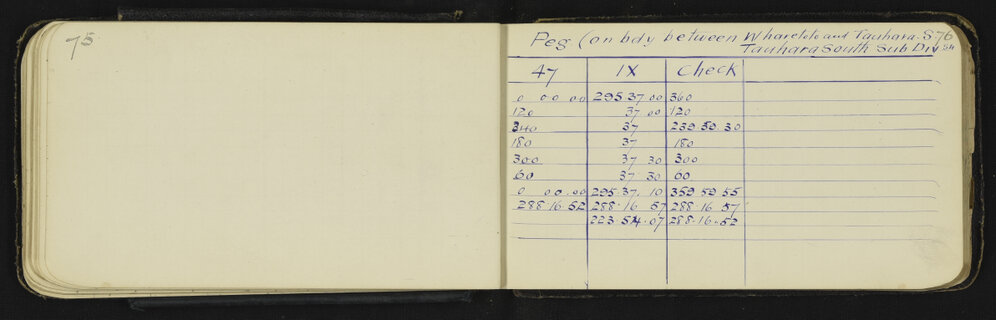 75
Peg (on bdy between Wharetoto and Tauhara. S. 76
Tauhara South Sub Div
47 IX Check
0 00 00 295 37 00 360
120 37 00 120
240 37 239.59.30
180 37 180
300 37 30 300
60 37 30 60
0 00.00 295.37.10 359 59 55
288.16.52 288.16 57 288.16.57
223.54.07 288.16.52